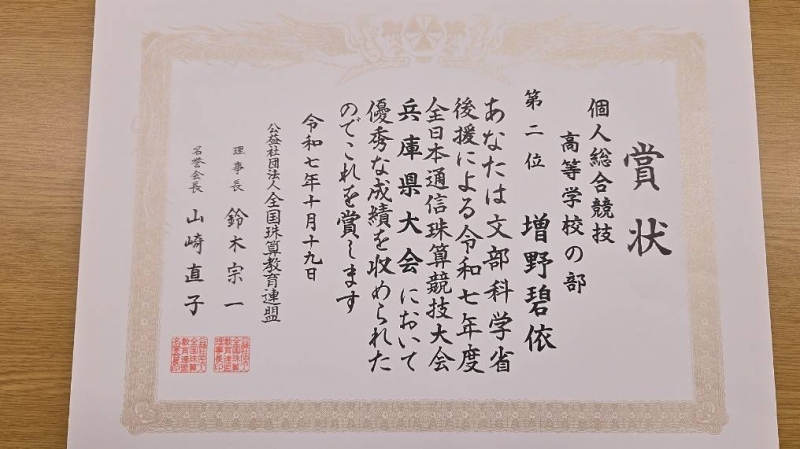 賞状
個人総合競技
高等学校の部
第二位 増野碧依
あなたは文部科学省
後援による令和七年度
全日本通信珠算競技大会
兵庫県大会において
優秀な成績を収められた
のでこれを賞します
令和七年十月十九日
公益社団法人全国珠算教育連盟
理事長 鈴木宗一
名誉会長 山崎直子